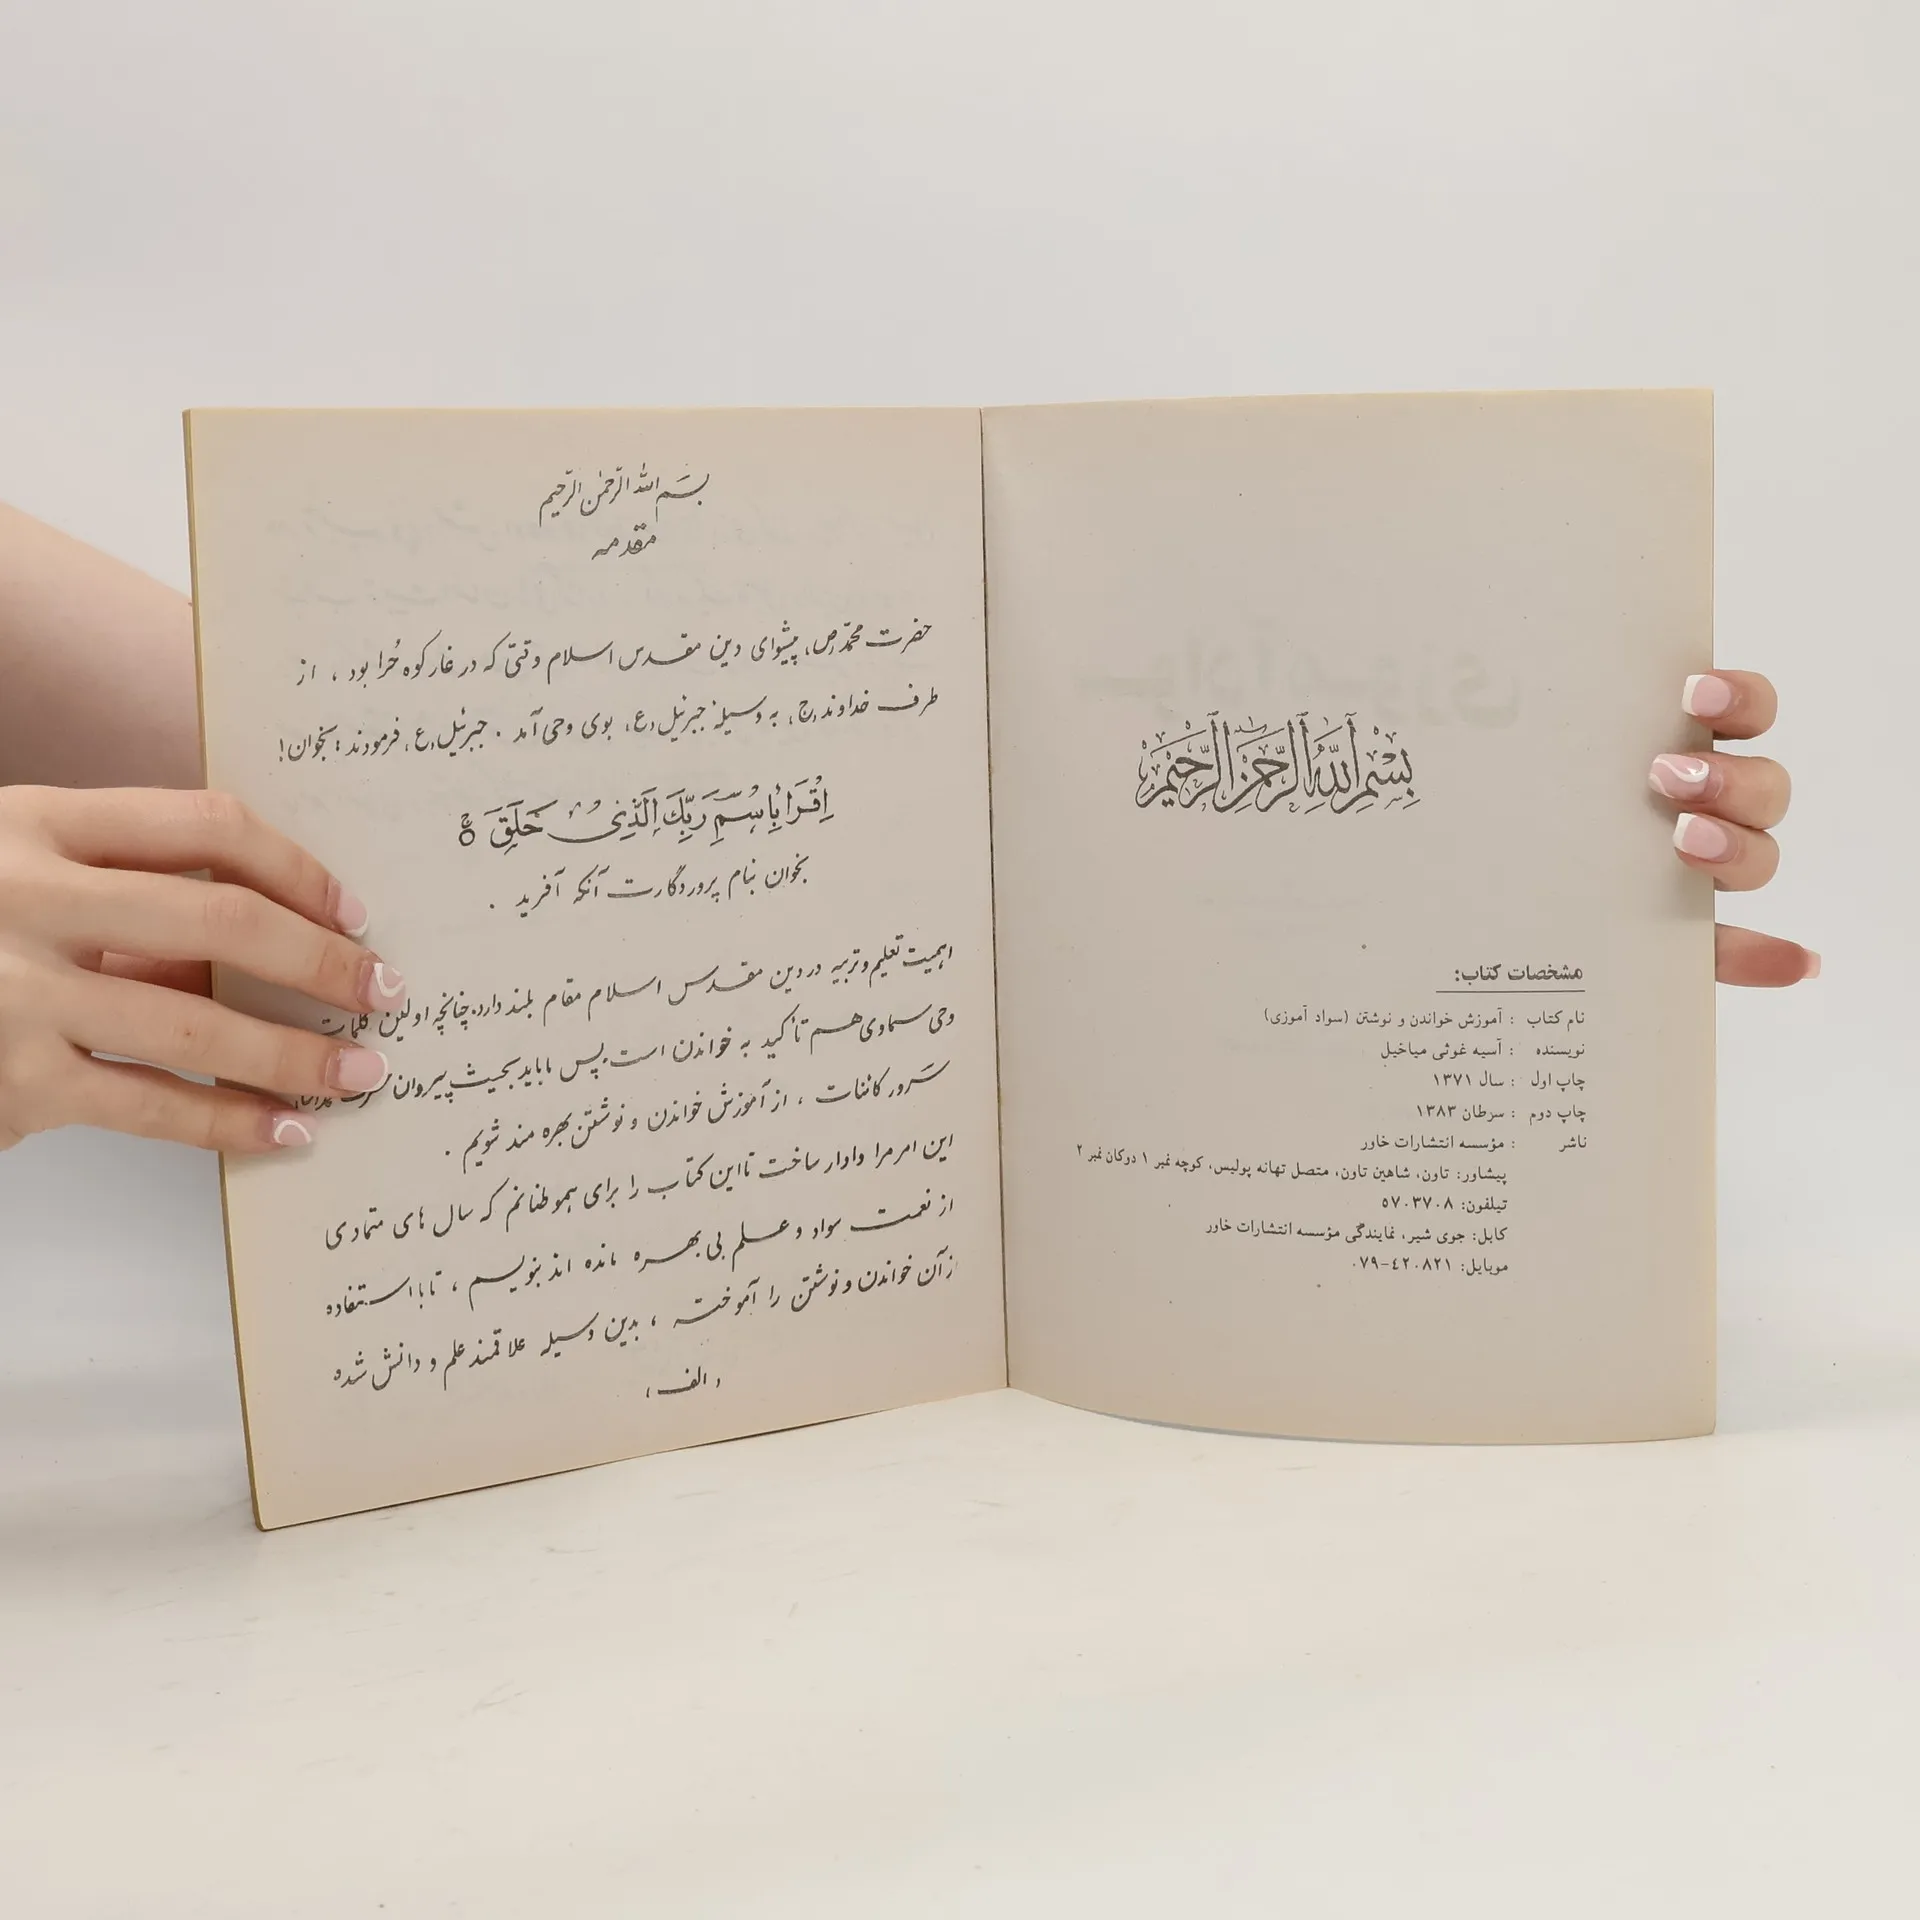 بِسْمِ اللَّهِ الرَّحْمَنِ الرَّحِيمِ
مشخصات کتاب:
نام کتاب : آموزش خواندن و نوشتن (سواد آموزی)
نویسنده : آسیه غوثی میاخیل
چاپ اول : سال ۱۳۷۱
چاپ دوم : سرطان ۱۳۸۳
ناشر : مؤسسه انتشارات خاور
پیشاور: تاون، شاهین تاون، متصل تهانه پولیس، کوچه نمبر ۱ دوکان نمبر ۲
تیلفون: ۵۷۰۳۷۰۸
کابل: جوی شیر، نمایندگی مؤسسه انتشارات خاور
موبایل: ۰۷۹-٤۲۰۸۲۱
بسم الله الرحمن الرحیم
مقدمه
حضرت محمد(ص) پیشوای دین مقدس اسلام وقتی که در غار کوه حُرا بود ، از
طرف خداوند(ج) به وسیله جبرئیل(ع) بوی وحی آمد . جبرئیل(ع) فرمودند : بخوان!
اِقْرَأ بِاسْمِ رَبِّكَ الَّذِی خَلَقَ
بخوان بنام پروردگارت آنکه آفرید .
اهمیت تعلیم و تربیه در دین مقدس اسلام مقام بلند دارد. چنانچه اولین کلمات
وحی سماوی هم تأکید به خواندن است. پس ما باید بحیث پیروان
سَرور کائنات ، از آموزش خواندن و نوشتن بهره مند شویم .
این امر مرا وادار ساخت تا این کتاب را برای هموطنانم که سال های متمادی
از نعمت سواد و علم بی بهره مانده اند بنویسم ، تا با استفاده
از آن خواندن و نوشتن را آموخته ، بدین وسیله علاقمند علم و دانش شده
، الف ،